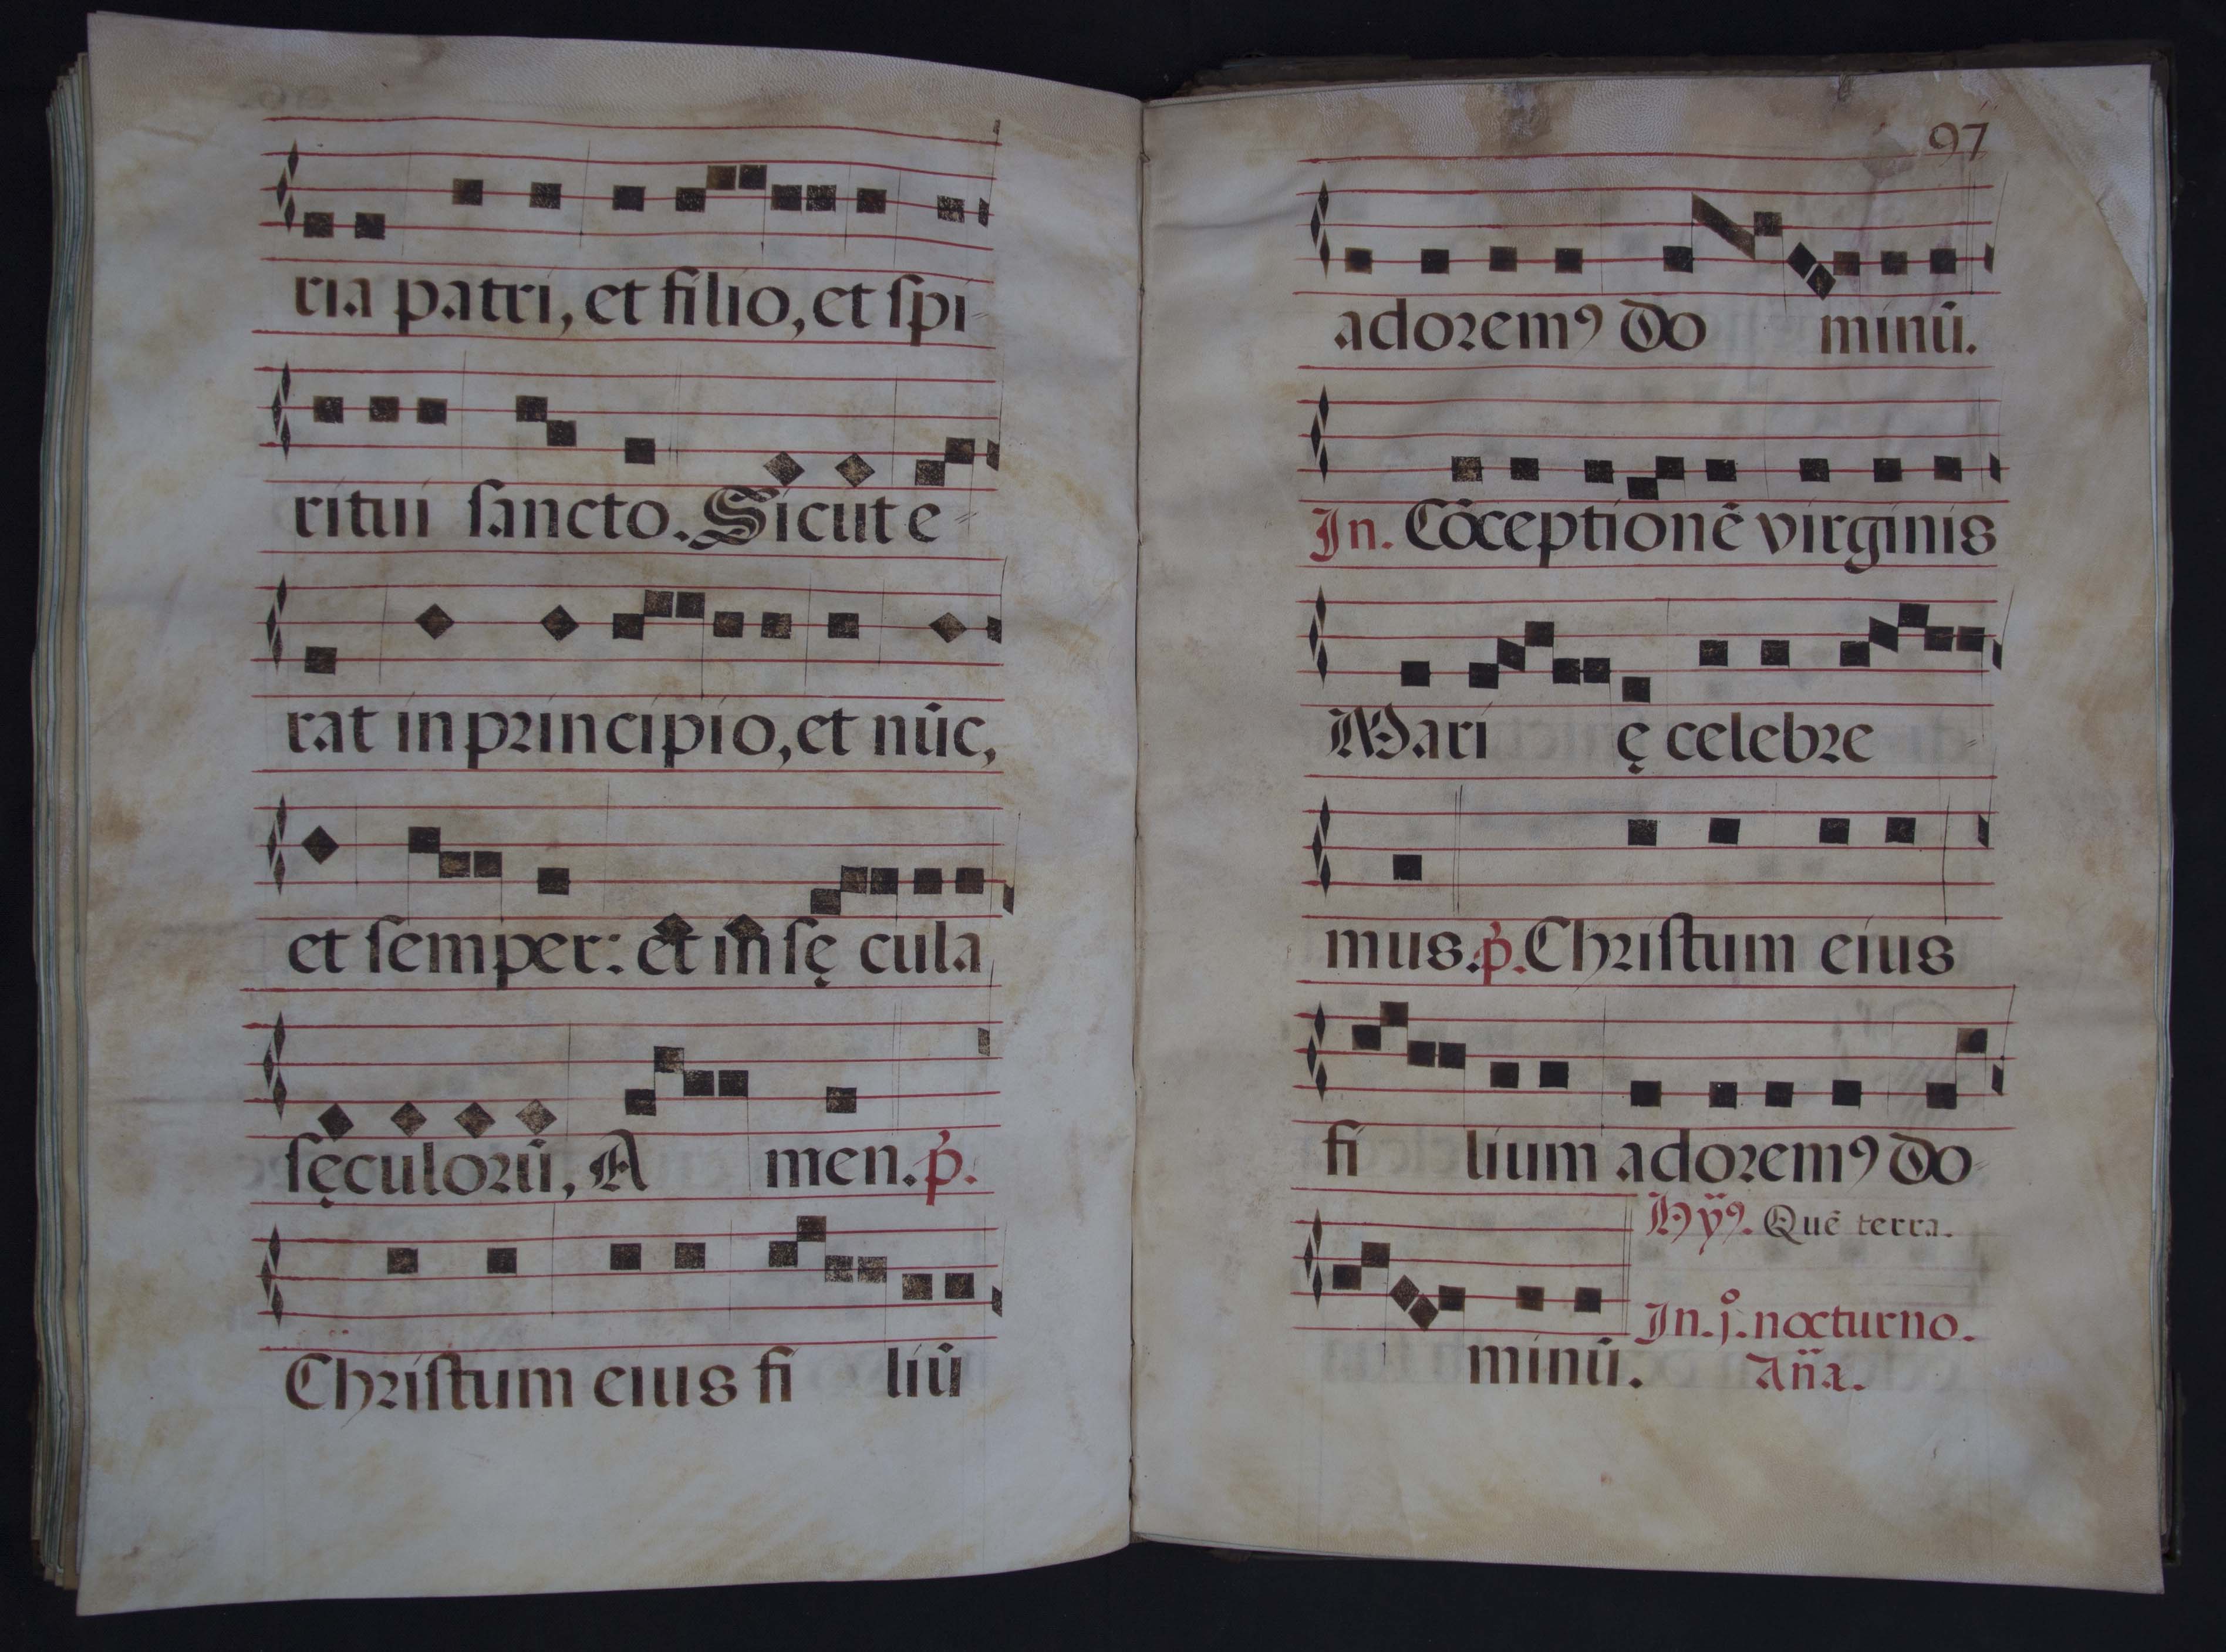 ria patri, et filio, et ſpi-
ritui ſancto. Sicut e-
rat in principio, et nūc,
et ſemper: et in ſę cula
ſęculoꝛū, A men. p̄.
Chꝛiſtum eius fi liū
97
adoꝛemꝰ do minū.
In. Cōceptionē virginis
Mari ę celebꝛe-
mus. p̄. Chꝛiſtum eius
fi lium adoꝛemꝰ do-
Hÿꝰ. Quē terra.
minū. In. j.º nocturno.
An̈a.